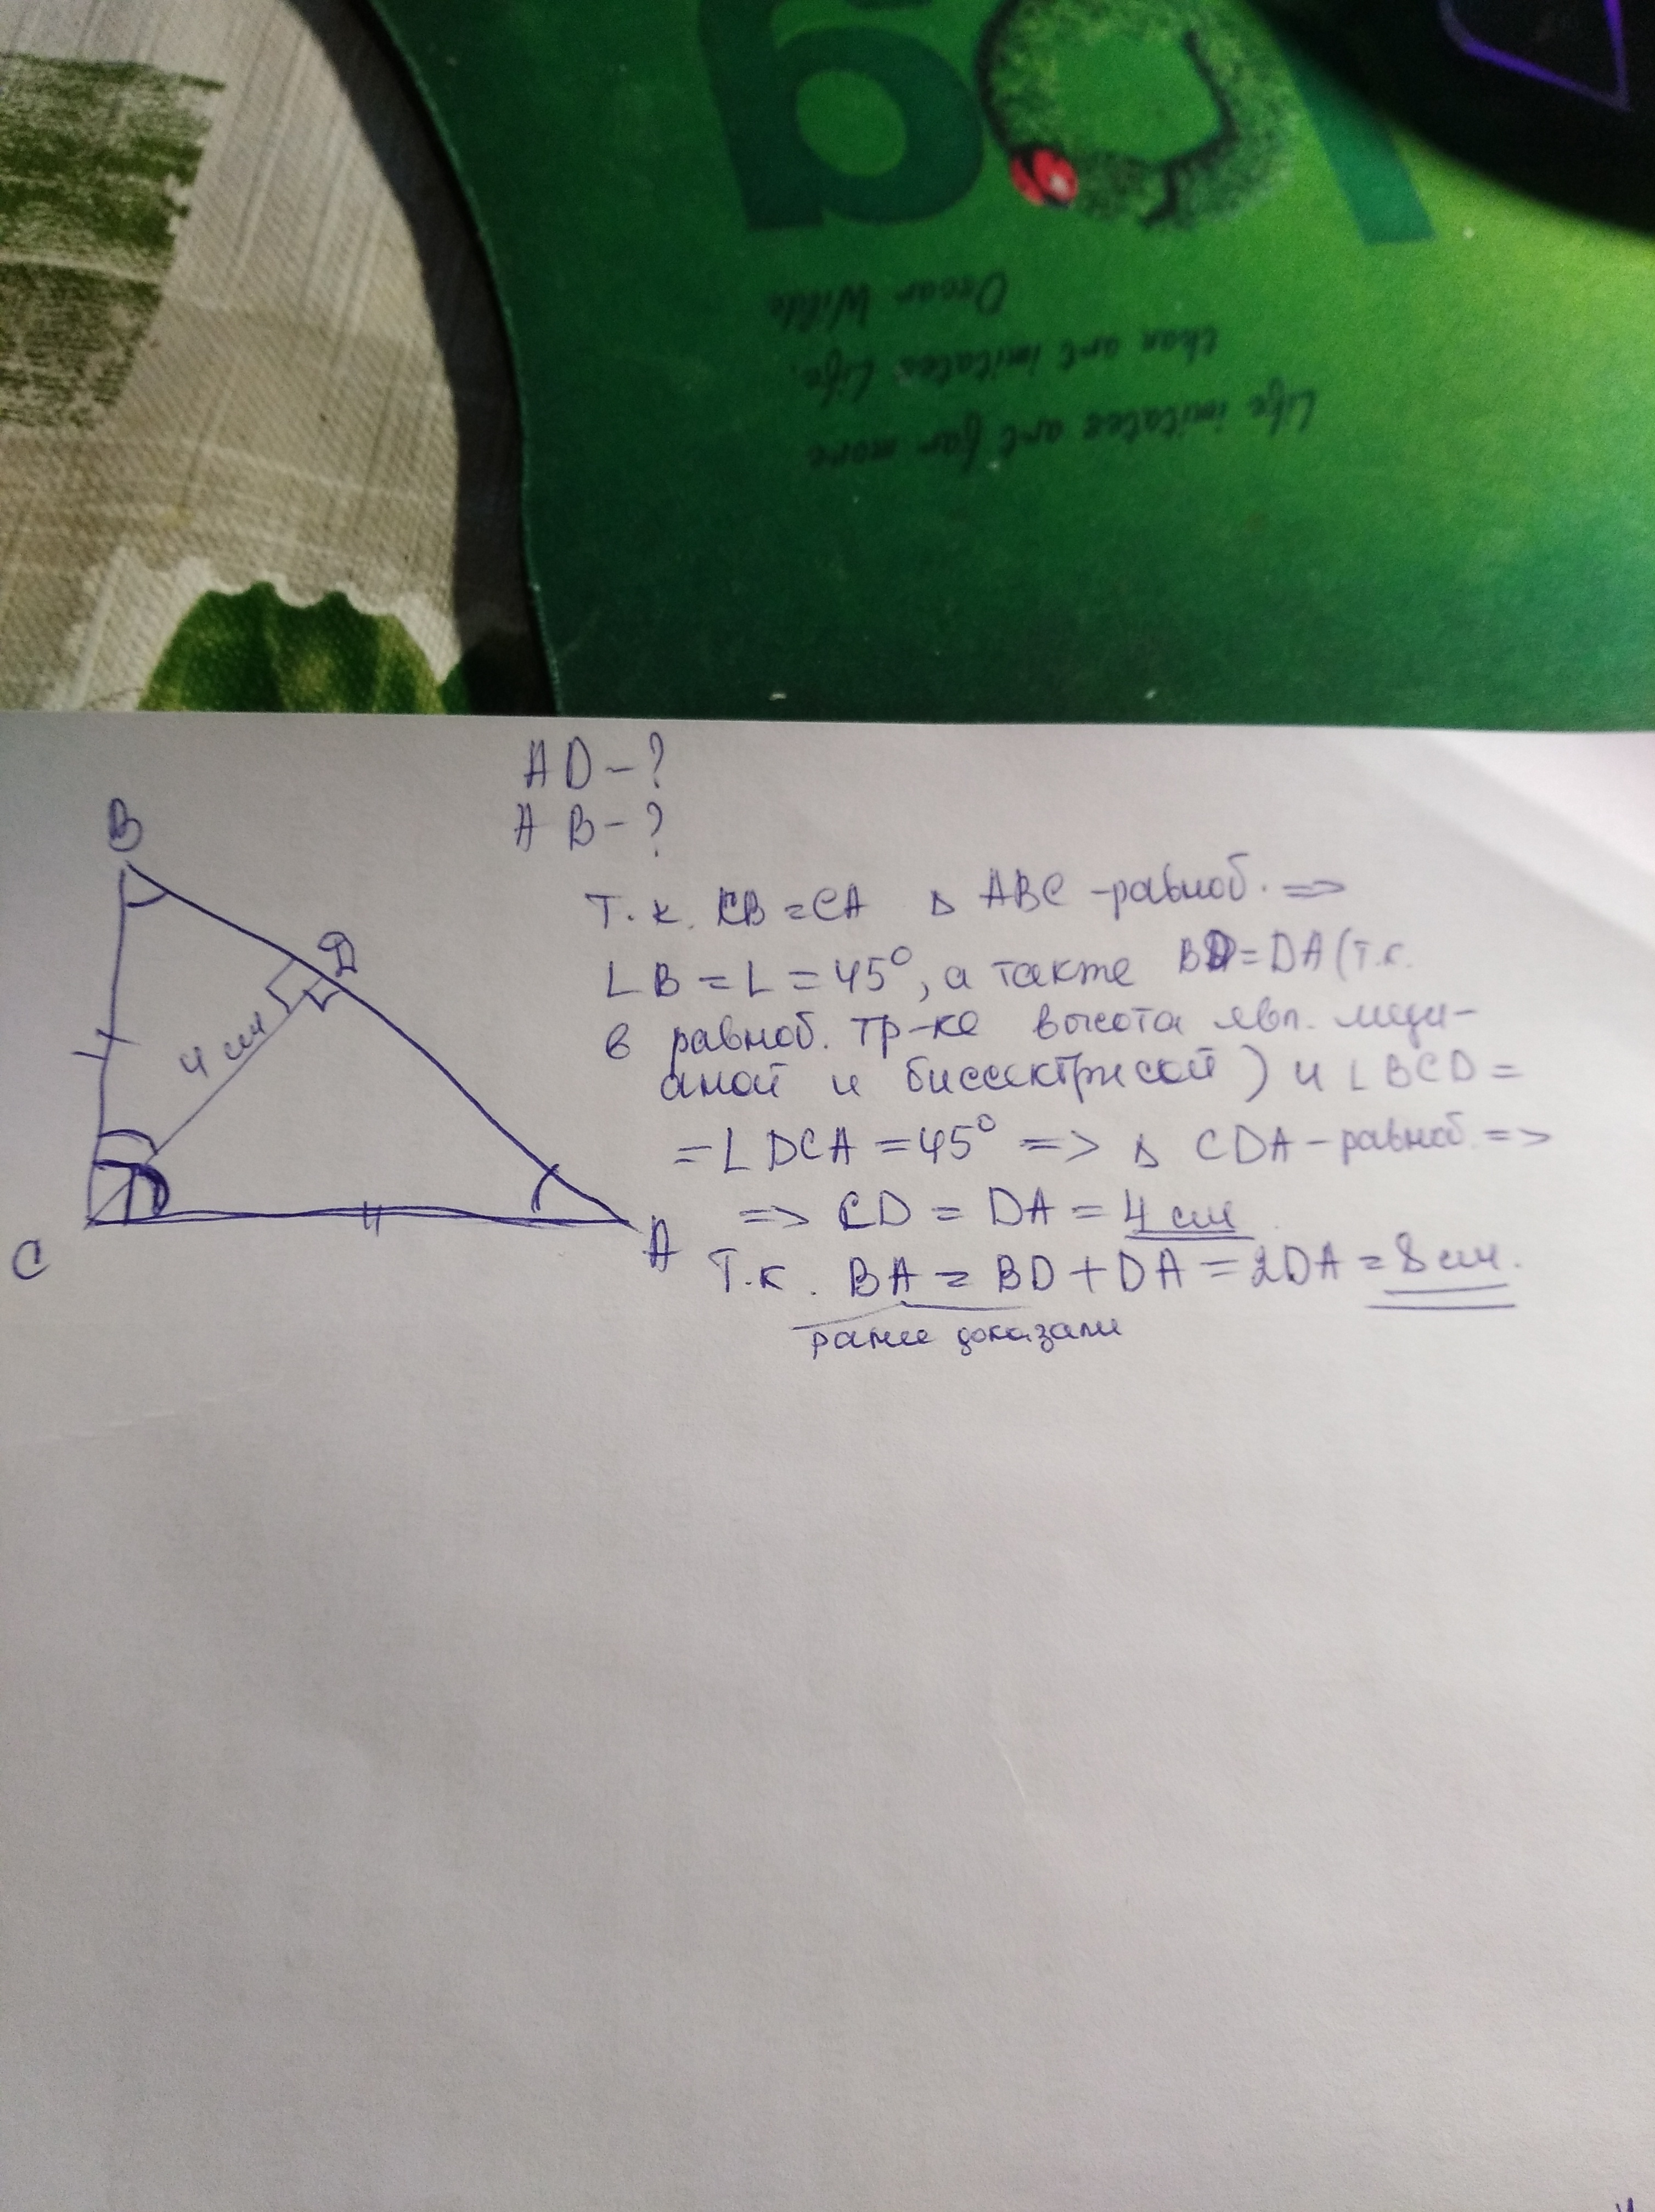 Oscar Wilde
than art imitates Life.
Life imitates art far more
AD-?
AB-?
B
D
4 см
C
A
Т.к. CB=CA ▵ ABC -равноб. =>
∟B=∟=45°, а также BD=DA (т.к.
в равноб. тр-ке высота явл. меди-
аной и биссектрисой) и ∟BCD=
=∟DCA=45° => ▵ CDA-равноб. =>
=> CD = DA = 4 см
Т.к. BA = BD+DA=2DA=8см.
ранее доказали